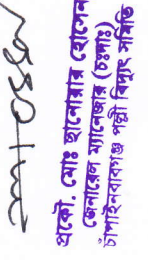 প্রকৌ. মোঃ ছানোয়ার হোসেন
জেনারেল ম্যানেজার (চঃদাঃ)
চাঁপাইনবাবগঞ্জ পল্লী বিদ্যুৎ সমিতি